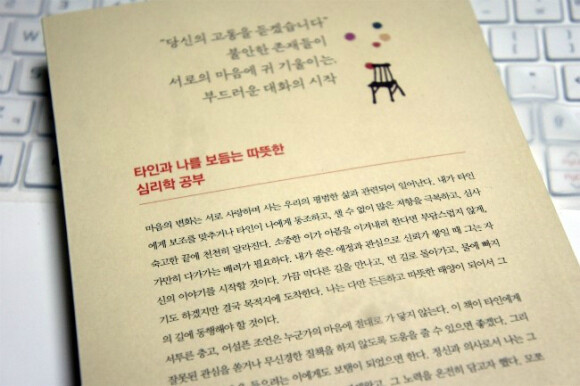 "당신의 고통을 듣겠습니다"
불안한 존재들이
서로의 마음에 귀 기울이는,
부드러운 대화의 시작
타인과 나를 보듬는 따뜻한
심리학 공부
마음의 변화는 서로 사랑하며 사는 우리의 평범한 삶과 관련되어 일어난다. 내가 타인
에게 보조를 맞추거나 타인이 나에게 동조하고, 셀 수 없이 많은 저항을 극복하고, 심사
숙고한 끝에 천천히 달라진다. 소중한 이가 아픔을 이겨내려 한다면 부담스럽지 않게,
가만히 다가가는 배려가 필요하다. 내가 쏟은 애정과 관심으로 신뢰가 쌓일 때 그는 자
신의 이야기를 시작할 것이다. 가끔 막다른 길을 만나고, 먼 길로 돌아가고, 늪에 빠지
기도 하겠지만 결국 목적지에 도착한다. 나는 다만 든든하고 따뜻한 태양이 되어서 그
의 길에 동행해야 할 것이다.
서투른 충고, 어설픈 조언은 누군가의 마음에 절대로 가 닿지 않는다. 이 책이 타인에게
잘못된 관심을 쏟거나 무신경한 질책을 하지 않도록 도움을 줄 수 있으면 좋겠다. 그리
이에게도 보탬이 되었으면 한다. 정신과 의사로서 나는 그
그 노력을 온전히 담고자 했다. 모쪼